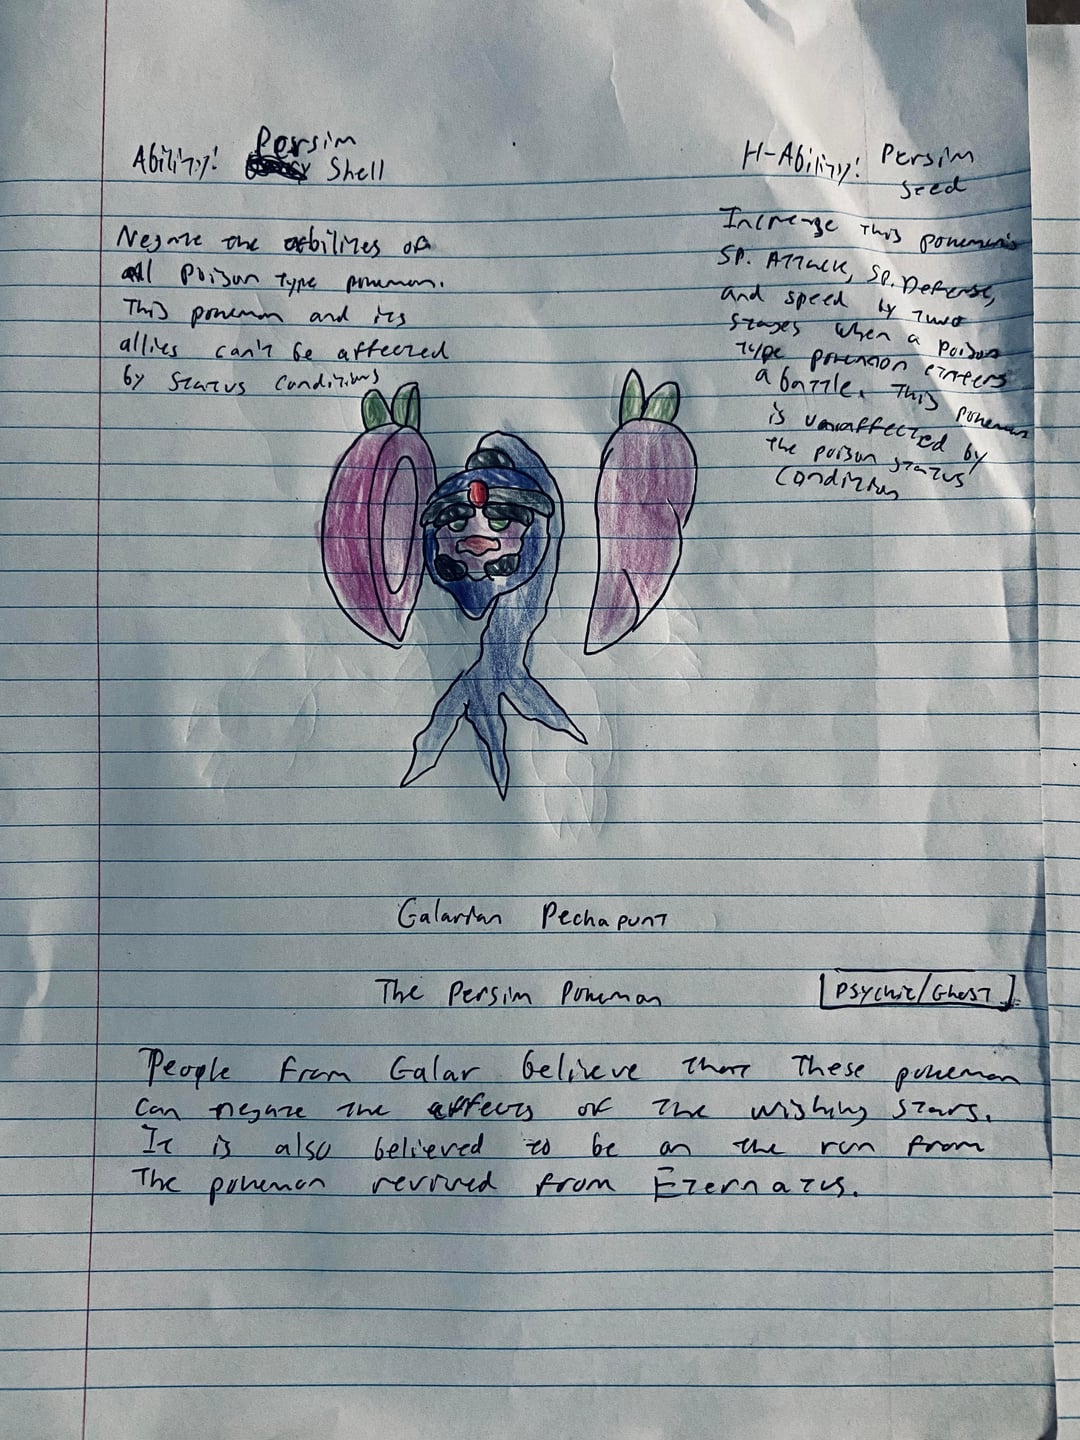 Ability: Persim
Shell
Negate the abilities of
all poison type pokemon.
This pokemon and its
allies can't be affected
by status conditions
H-Ability: Persim
Seed
Increase this pokemon's
SP. Attack, SP. Defense,
and speed by two
stages when a poison
type pokemon enters
a battle. This pokemon
is unaffected by
the poison status
condition
Galarian Pechapunt
The Persim Pokemon
[Psychic/Ghost]
People from Galar believe that these pokemon
can negate the affects of the wishing stars.
It is also believed to be on the run from
The pokemon revived from Eternatus.